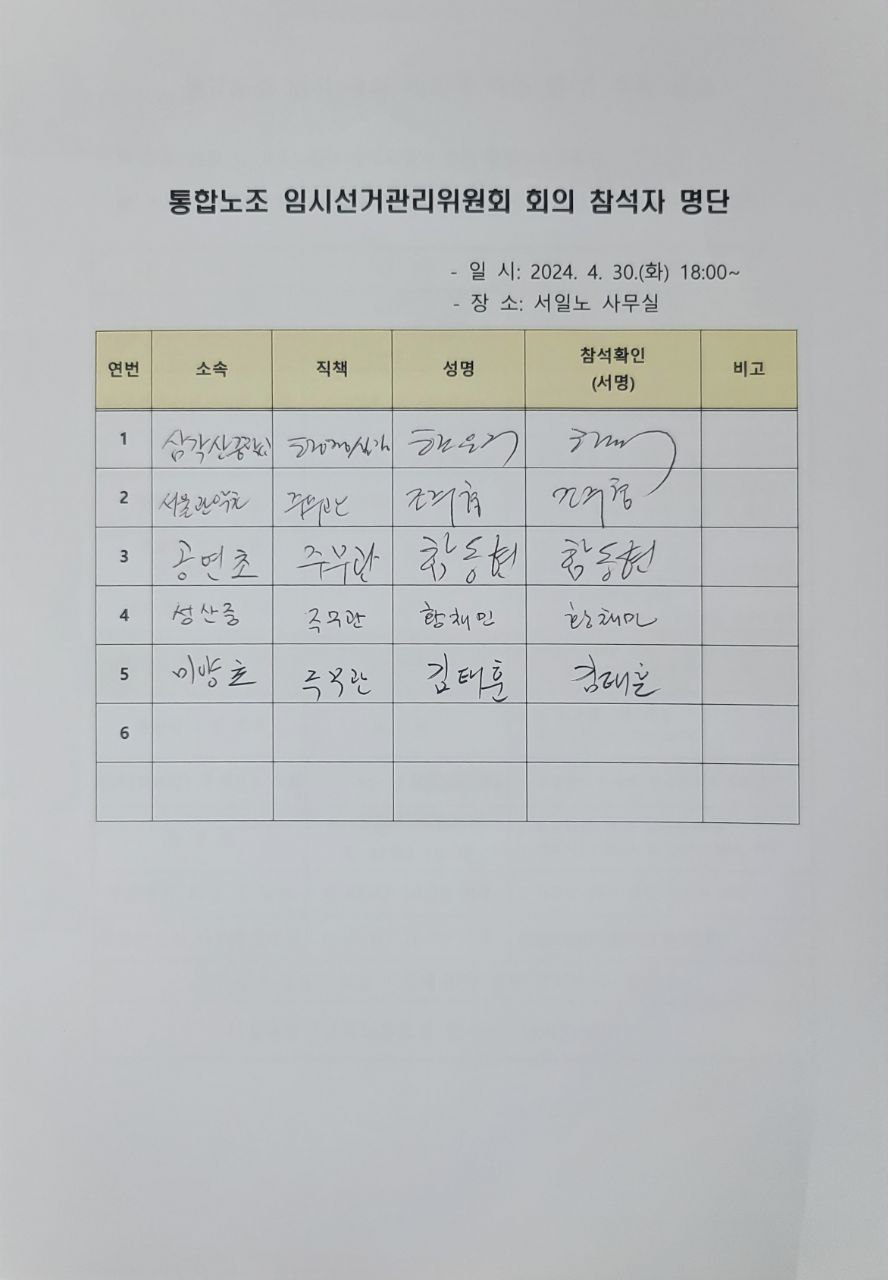 통합노조 임시선거관리위원회 회의 참석자 명단
- 일 시: 2024. 4. 30.(화) 18:00~
- 장 소: 서일노 사무실
연번 소속 직책 성명 참석확인 (서명) 비고
1
2 주무관
3 공연초 주무관 황동현 황동현
4 성산중 주무관 황채민 황채민
5 미양초 주무관 김태훈 김태훈
6